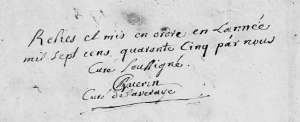 Reliés et mis en ordre en Lannée
mil sept cens quarante Cinq par nous
Curé Soussigné
Guerin
Curé de